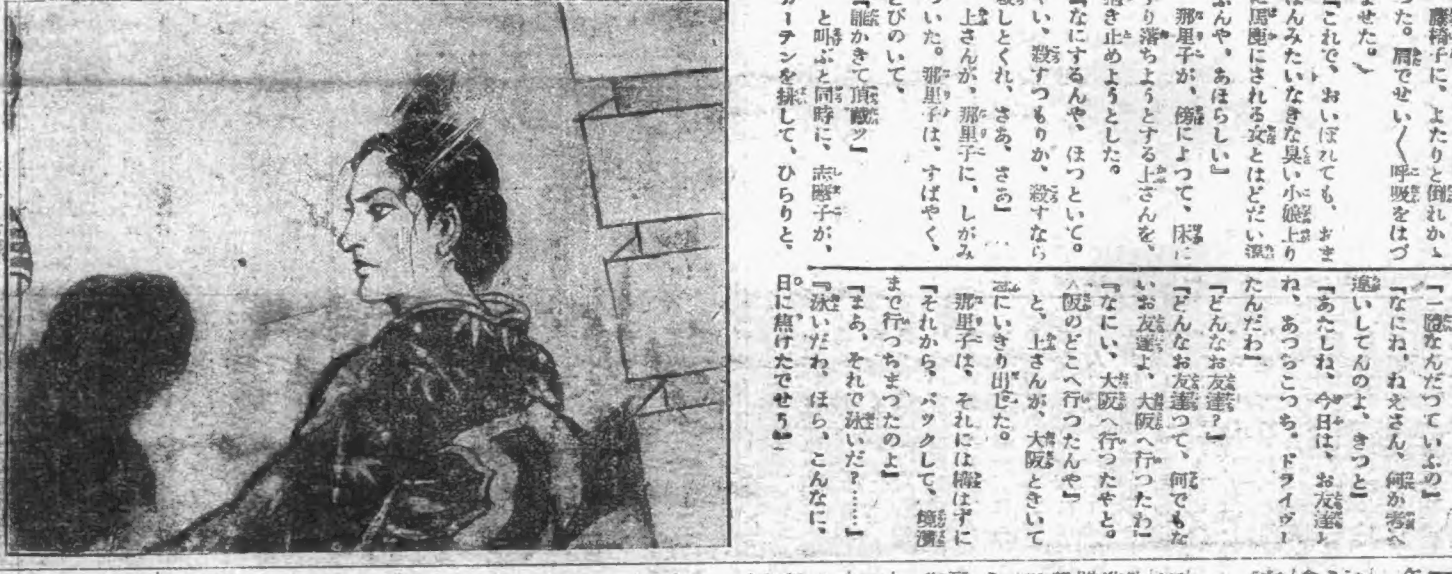 藤椅子に、よたりと倒れかゝ
つた。肩でせい〳〵呼吸をはづ
ませた。
『これで、おいぼれても、おま
はんみたいなきな臭い小娘上り
に馬鹿にされる女とはどだい
ぶんや、あほらしい』
那里子が、傍によつて、床に
すり落ちようとする上さんを、
抱き止めようとした。
『なにするんや、ほつといて。
い、殺すつもりか、殺すなら
殺しとくれ、さあ、さあ』
上さんが、那里子に、しがみ
ついた。那里子は、すばやく、
とびのいて、
『誰かきて頂戴ッ』
と叫ぶと同時に、志摩子が、
カーテンを排して、ひらりと、
『一體なんだつていふの』
『なにね、ねえさん、何か考へ
違いしてんのよ、きつと』
『あたしね、今日は、お友達と
ね、あつちこつち、ドライヴし
たんだわ』
『どんなお友達?』
『どんなお友達つて、何でもな
いお友達よ、大阪へ行つたわ』
『なにい、大阪へ行つたやと。
大阪のどこへ行つたんや』
と、上さんが、大阪ときいて
にいきり出した。
那里子は、それには構はずに
『それから、バックして、須濱
まで行つちまつたのよ』
『まあ、それで泳いだ?……』
『泳いだわ、ほら、こんなに、
日に焦けたでせう』